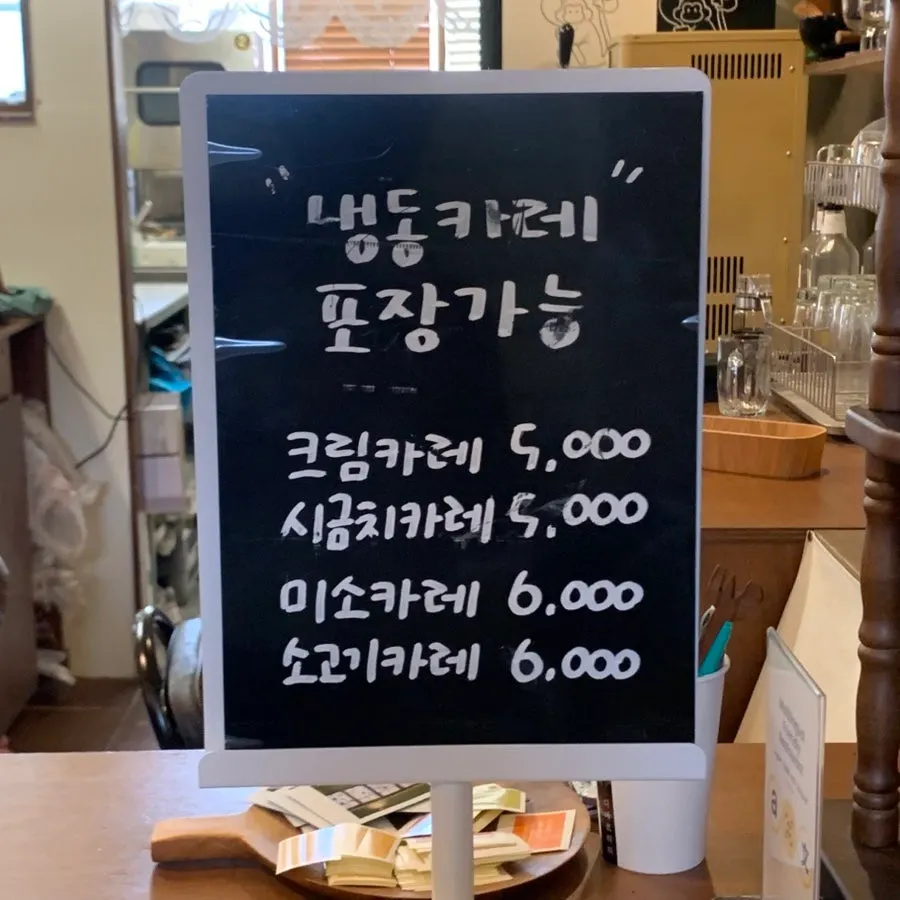 "냉동카레"
포장가능
크림카레 5,000
시금치카레 5,000
미소카레 6,000
소고기카레 6,000